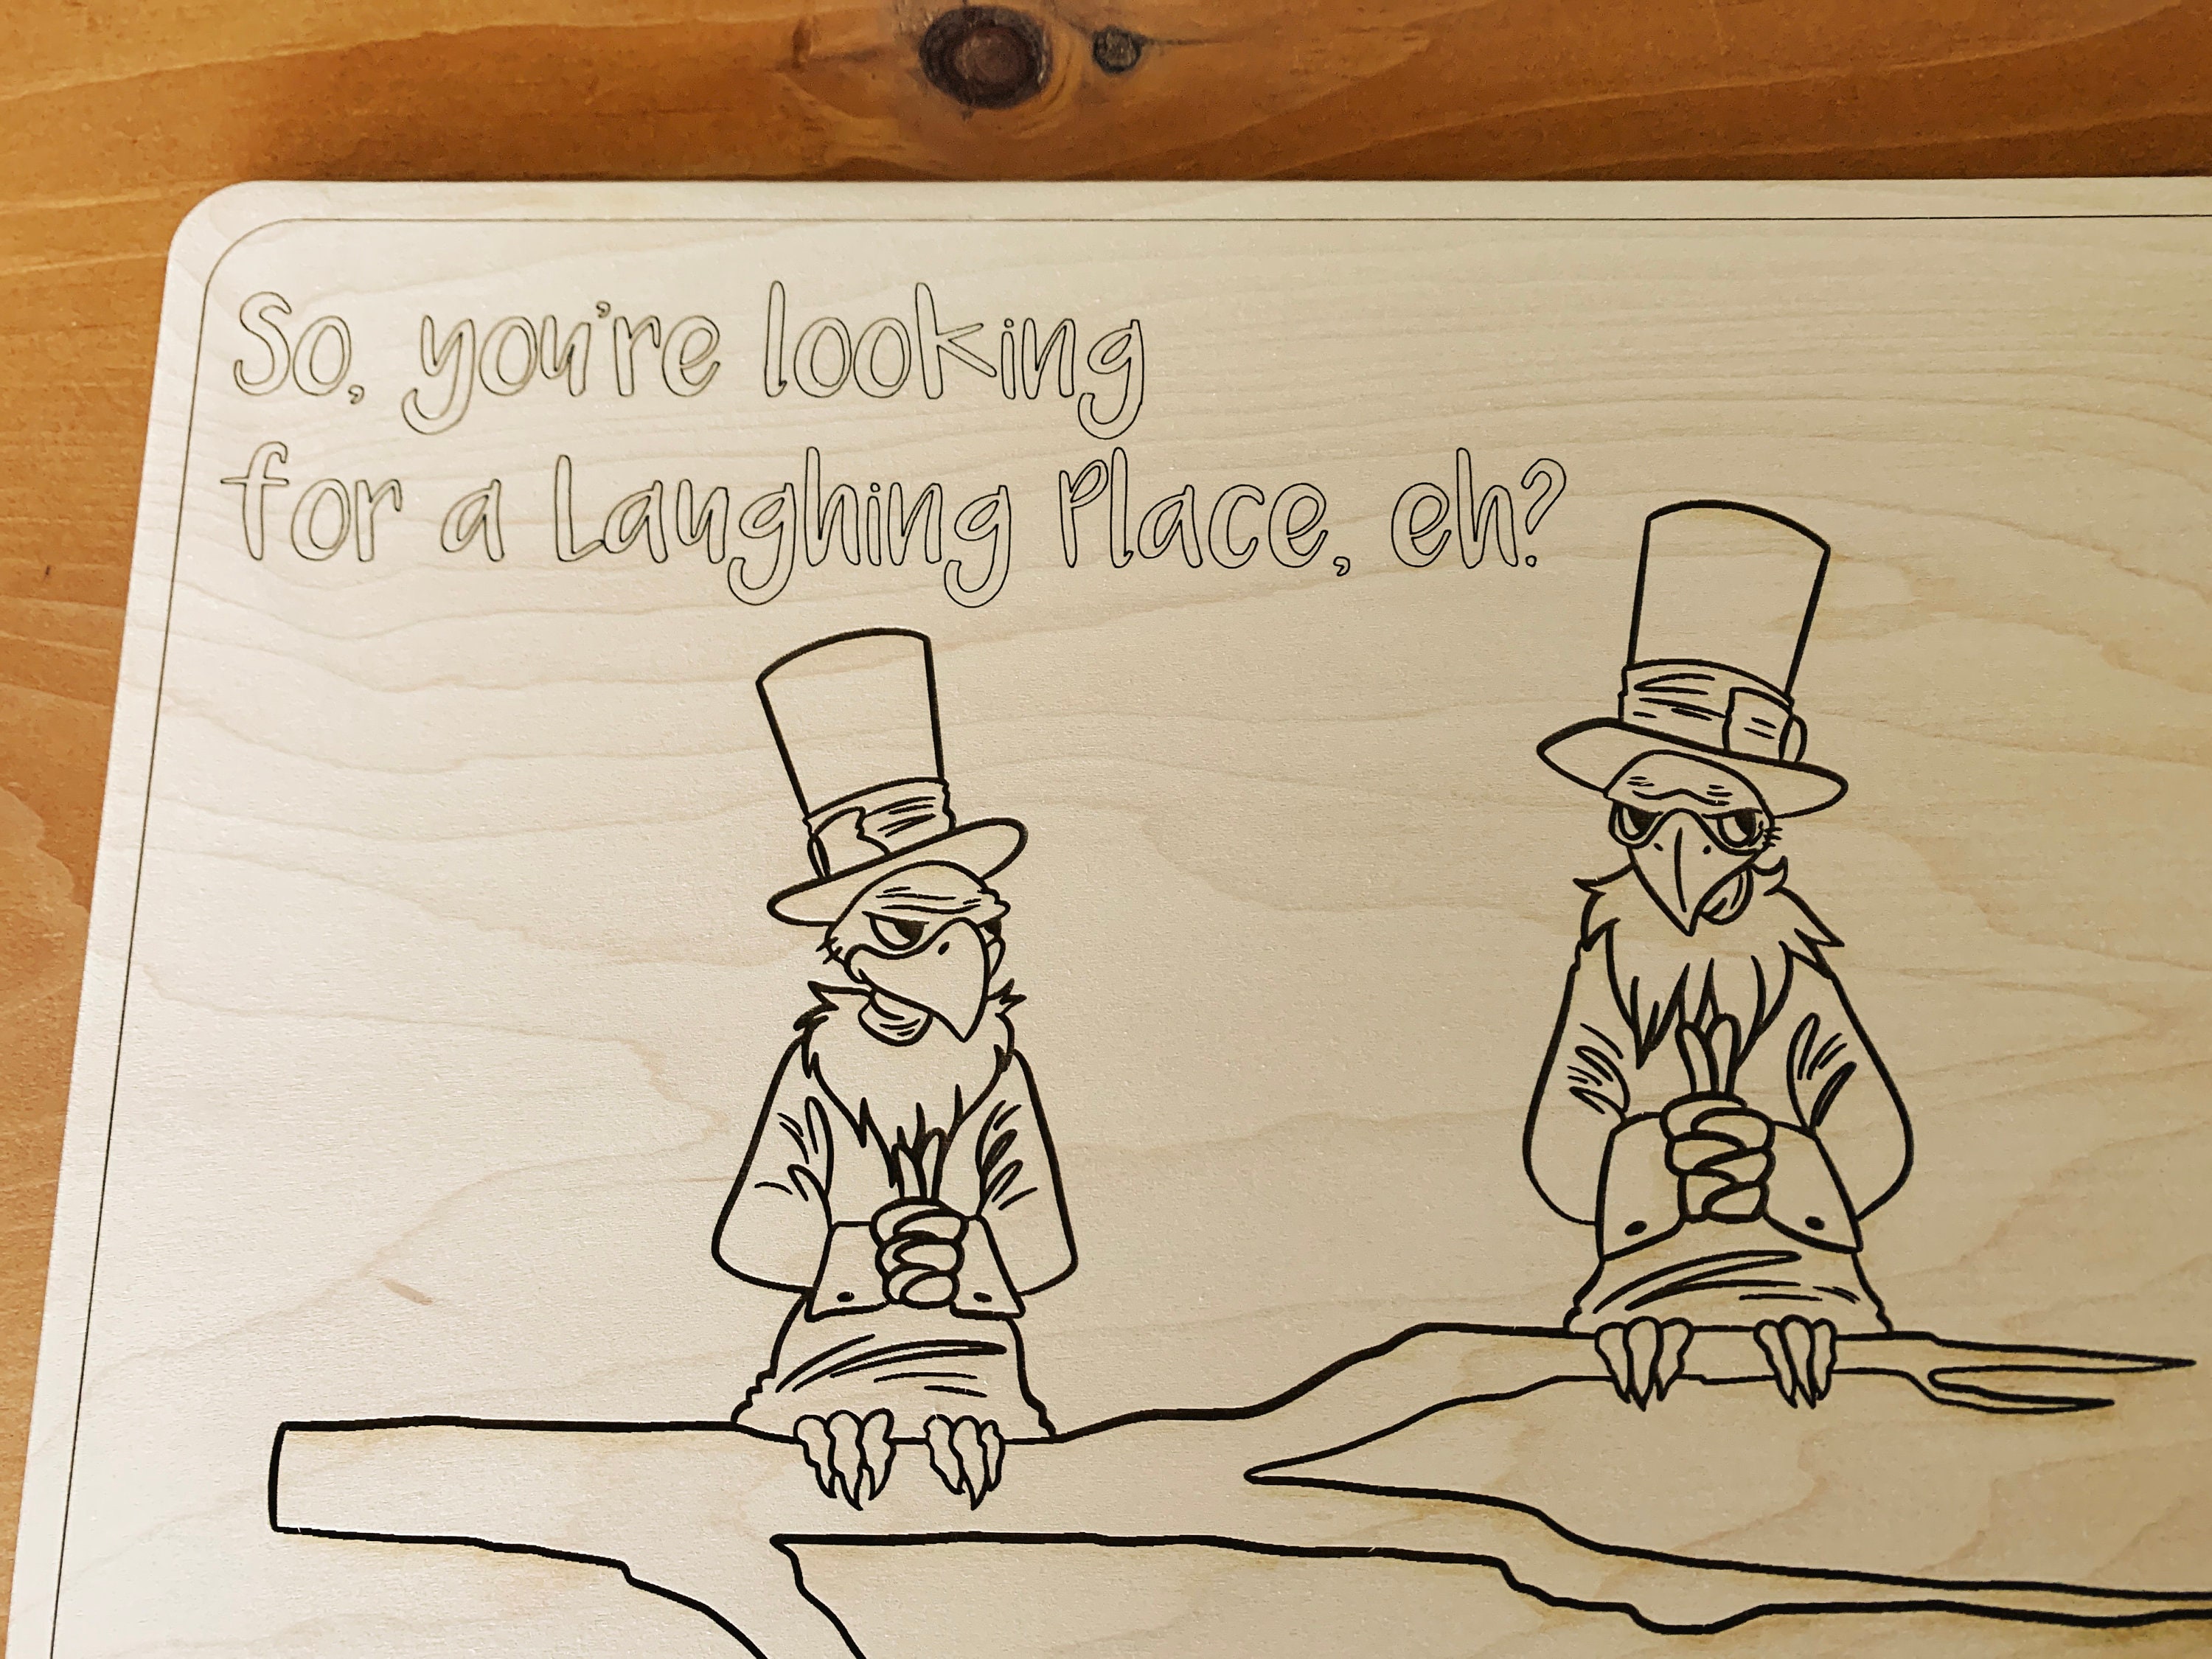 So, you're looking
for a Laughing Place, eh?